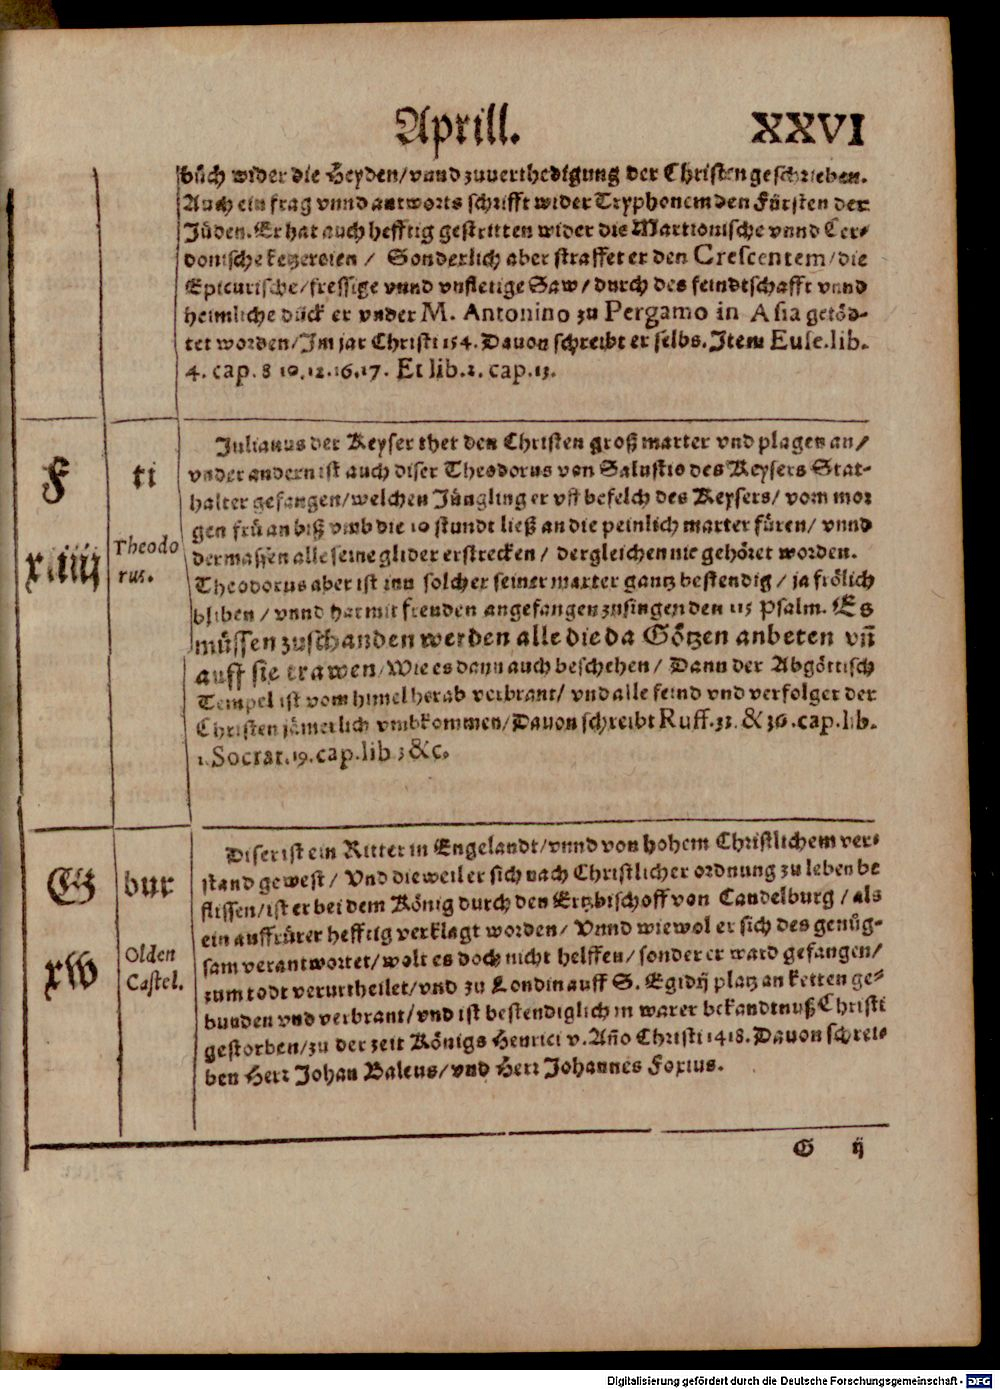 Aprill. XXVI
bůch wider die Heyden/vnnd zuuerthedigung der Christen geschrieben.
Auch ein frag vnnd antworts schrifft wider Tryphonem den Fürsten der
Jüden. Er hat auch hefftig gestritten wider die Martionische vnnd Cer-
donische ketzereien / Sonderlich aber straffet er den Crescentem/die
Epicurische/fressige vnnd vnfletige Saw/durch des feindtschafft vnnd
heimliche dück er vnder M. Antonino zu Pergamo in Asia getöd-
tet worden/Im jar Christi 154. Dauon schreibt er selbs. Item Euse.lib.
4. cap. 8 10.12.16.17. Et lib.2. cap.13.
Julianus der Keyser thet den Christen groß marter vnd plagen an/
F ti vnder andern ist auch diser Theodorus von Salustio des Keysers Stat-
halter gefangen/welchen Jüngling er vff befelch des Keysers/ vom mor
gen frü an biß vmb die 10 stundt ließ an die peinlich marter füren/ vnnd
xiiij Theodo dermassen alle seine glider erstrecken / dergleichen nie gehöret worden.
rus. Theodorus aber ist inn solcher seiner marter gantz bestendig / ja frölich
bliben / vnnd hat mit freuden angefangen zusingen den 115 Psalm. Es
müssen zuschanden werden alle die da Götzen anbeten vn̄
auff sie trawen/Wie es dann auch beschehen/ Dann der Abgöttisch
Tempel ist vom himel herab verbrant/ vnd alle feind vnd verfolger der
Christen jämerlich vmbkommen/Dauon schreibt Ruff.33. & 36.cap.lib.
1. Socrat.19.cap.lib 3 &c.
Diser ist ein Ritter in Engelandt/vnnd von hohem Christlichem ver-
G bur stand gewest/ Vnd dieweil er sich nach Christlicher ordnung zu leben be
flissen/ist er bei dem König durch den Ertzbischoff von Candelburg/als
ein auffrürer hefftig verklagt worden/ Vnnd wiewol er sich des genůg-
xv Olden sam verantwortet/wolt es doch nicht helffen/sonder er ward gefangen/
Castel. zum todt verurtheilet/vnd zu Londin auff S. Egidij platz an ketten ge-
bunden vnd verbrant/vnd ist bestendiglich in warer bekandtnuß Christi
gestorben/zu der zeit Königs Henrici v. Año Christi 1418. Dauon schrei-
ben Herr Johan Baleus/vnd Herr Johannes Foxius.
G ij
Digitalisierung gefördert durch die Deutsche Forschungsgemeinschaft - DFG